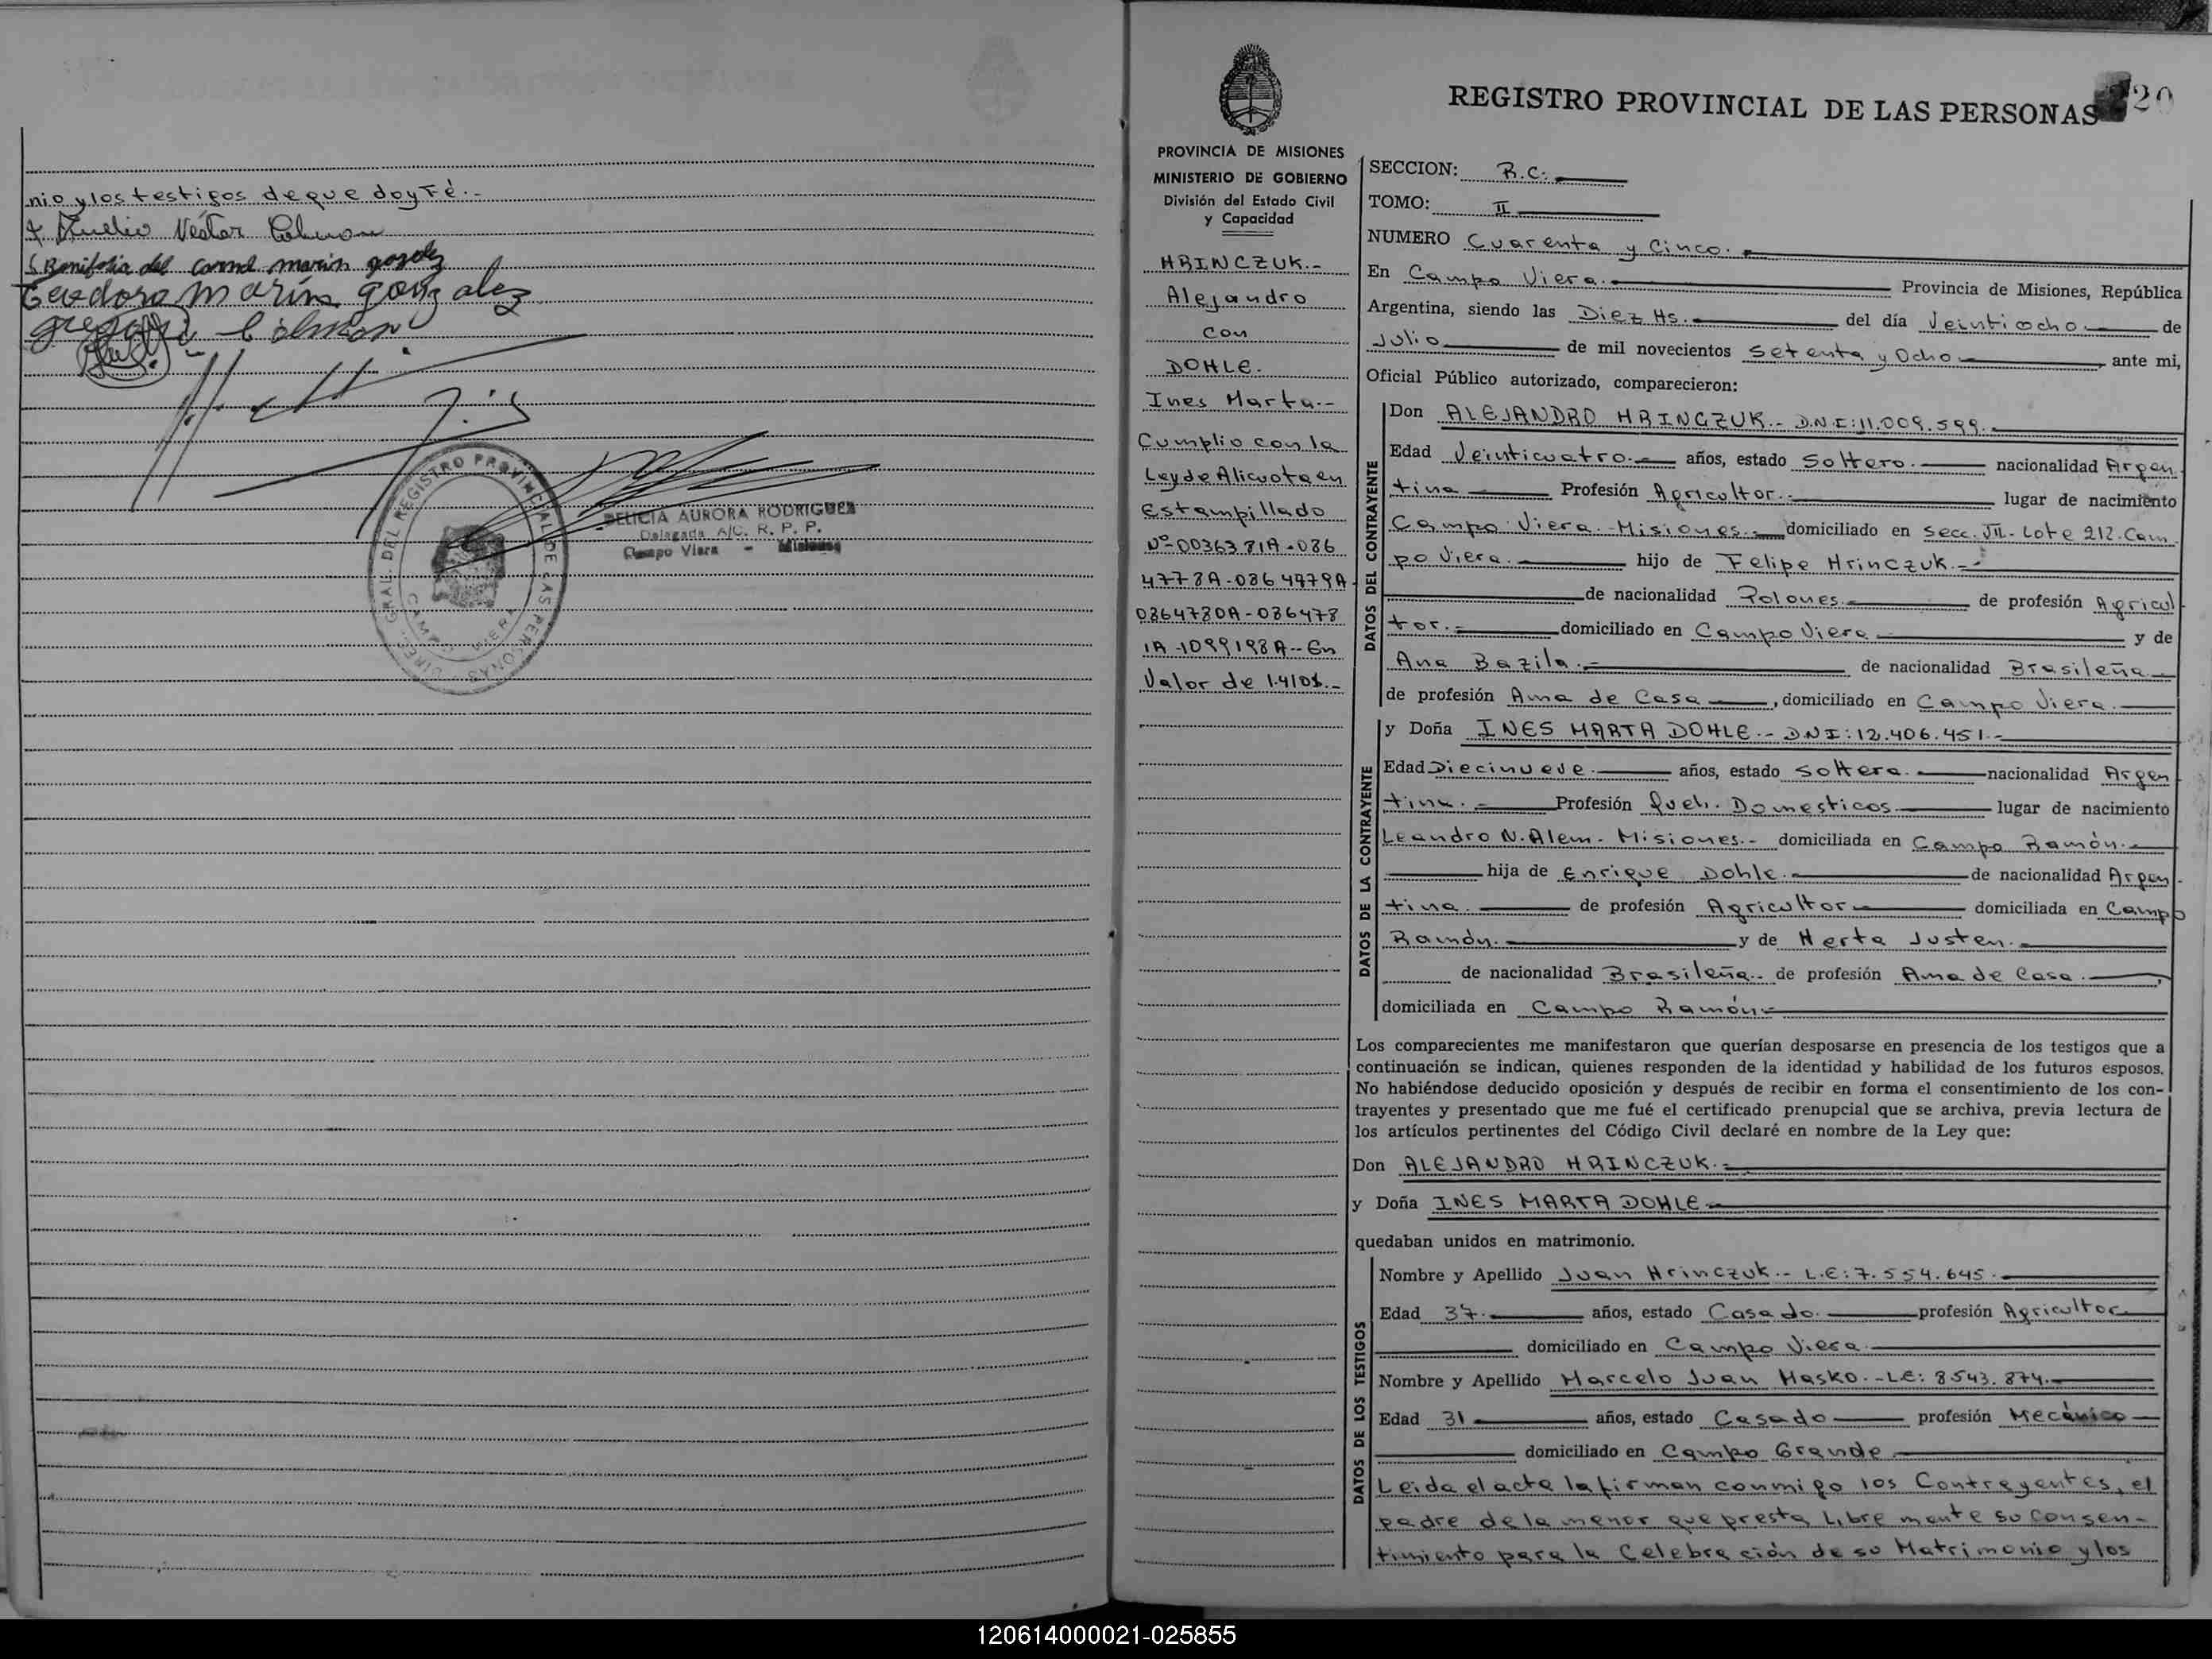 nio y los testigos de que doy Fé.-
Nestor Colman
Bonifacia del Carmen marin
Teodora Marin gonzalez
Colman
DIREC. GRAL. DEL REGISTRO PROVINCIAL DE LAS PERSONAS
CAMPO VIERA
DELICIA AURORA RODRIGUEZ
Delegada A/C. R. P. P.
Campo Viera - Misiones
PROVINCIA DE MISIONES
MINISTERIO DE GOBIERNO
División del Estado Civil
y Capacidad
HRINCZUK.-
Alejandro
con
DOHLE.
Ines Marta.-
Cumplio con la
Ley de Alicuota en
Estampillado
Nº-0036381A-086
4778A-0864779A
0864780A-086478
1A-1099198A-- En
Valor de 1.410$.-
REGISTRO PROVINCIAL DE LAS PERSONAS
20
SECCION: R.C.
TOMO: II
NUMERO Cuarenta y Cinco.
En Campo Viera. Provincia de Misiones, República
Argentina, siendo las Diez Hs. del día Veintiocho de
Julio de mil novecientos Setenta y Ocho ante mi,
Oficial Público autorizado, comparecieron:
DATOS DEL CONTRAYENTE
Don ALEJANDRO HRINCZUK.- D.N.I:11.009.599.
Edad Veinticuatro.- años, estado Soltero. nacionalidad Argen
tina Profesión Agricultor. lugar de nacimiento
Campo Viera.-Misiones.- domiciliado en Secc. VII. Lote 212. Cam
po Viera. hijo de Felipe Hrinczuk.-
de nacionalidad Polones. de profesión Agricul
tor.- domiciliado en Campo Viera y de
Ana Bazila.- de nacionalidad Brasileña
de profesión Ama de Casa , domiciliado en Campo Viera.
DATOS DE LA CONTRAYENTE
y Doña INES MARTA DOHLE.- DNI:12.406.451.-
Edad Diecinueve. años, estado Soltera. nacionalidad Argen
tina.- Profesión Queh. Domesticos. lugar de nacimiento
Leandro N. Alem.- Misiones.- domiciliada en Campo Ramón.-
hija de Enrique Dohle. de nacionalidad Argen
tina. de profesión Agricultor domiciliada en Campo
Ramón. y de Herta Justen.
de nacionalidad Brasileña.- de profesión Ama de Casa.
domiciliada en Campo Ramón.-
Los comparecientes me manifestaron que querían desposarse en presencia de los testigos que a
continuación se indican, quienes responden de la identidad y habilidad de los futuros esposos.
No habiéndose deducido oposición y después de recibir en forma el consentimiento de los con-
trayentes y presentado que me fué el certificado prenupcial que se archiva, previa lectura de
los artículos pertinentes del Código Civil declaré en nombre de la Ley que:
Don ALEJANDRO HRINCZUK.-
y Doña INES MARTA DOHLE
quedaban unidos en matrimonio.
DATOS DE LOS TESTIGOS
Nombre y Apellido Juan Hrinczuk.- L.E:7.554.645.
Edad 37. años, estado Casado. profesión Agricultor
domiciliado en Campo Viera.
Nombre y Apellido Marcelo Juan Hasko.-LE: 8543.874.
Edad 31 años, estado Casado profesión Mecánico
domiciliado en Campo Grande
Leida el acta la firman conmigo los Contrayentes, el
padre de la menor que presta Libre mente su consen-
timiento para la Celebración de su Matrimonio y los
120614000021-025855